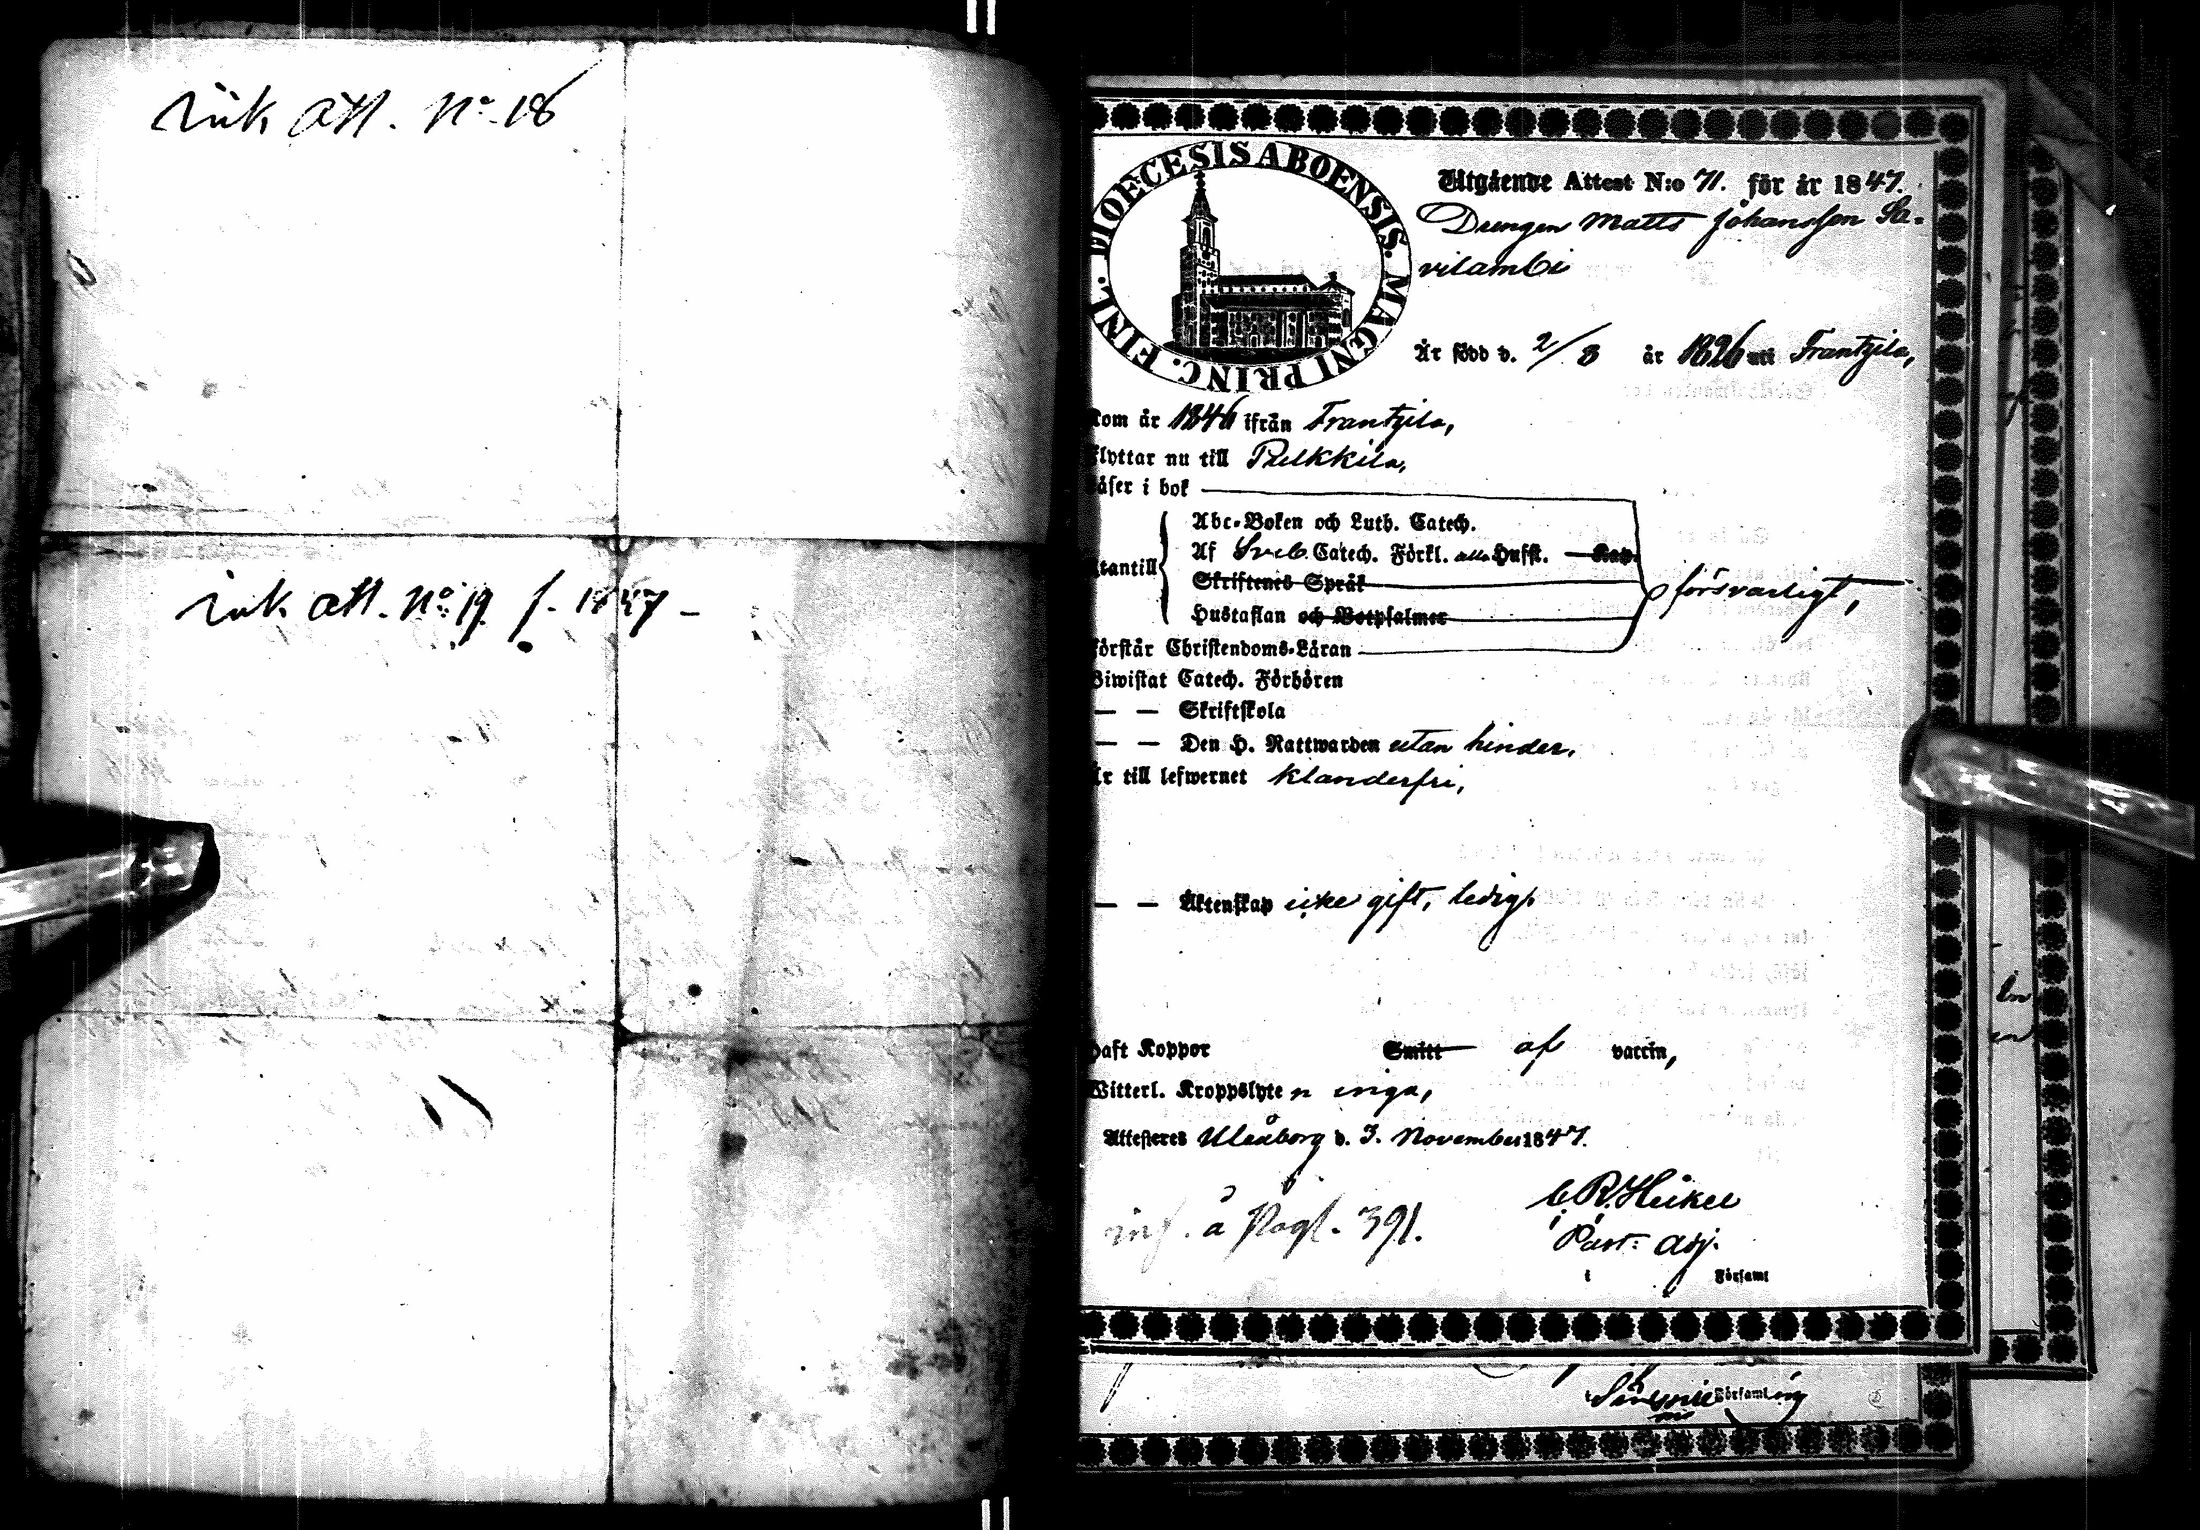 Ink att. No 18
Ink att. No 19 f. 1847 -
DIOECESIS ABOENSIS. MAGNI PRINC. FINL.
Utgående Attest N:o 71. för år 1847.
Drengen Matts Johansson Sa-
vilambi
Är född d. 2/8 år 1826 uti Frantzila,
kom år 1846 ifrån Frantzila,
flyttar nu till Pulkkila,
Läser i bok
Abc-Boken och Luth. Catech.
Af Sveb. Catech. Förkl. Husst. Kap.
Utantill
Skriftenes Språk
försvarligt,
Hustaflan och Botpsalmer
Förstår Christendoms-Läran
Biwistat Catech. Förhören
— — Skriftskola
— — Den H. Nattwarden utan hinder,
Är till lefwernet klanderfri,
— — Äktenskap icke gift, ledig,
Haft Koppor Smitt af vaccin,
Witterl. Kroppslyten inga,
Attesteras Uleåborg d. 3. November 1847.
C. R. Heikel
inf. å Pagl. 391.
Past: Adj.
i Församl
Församl